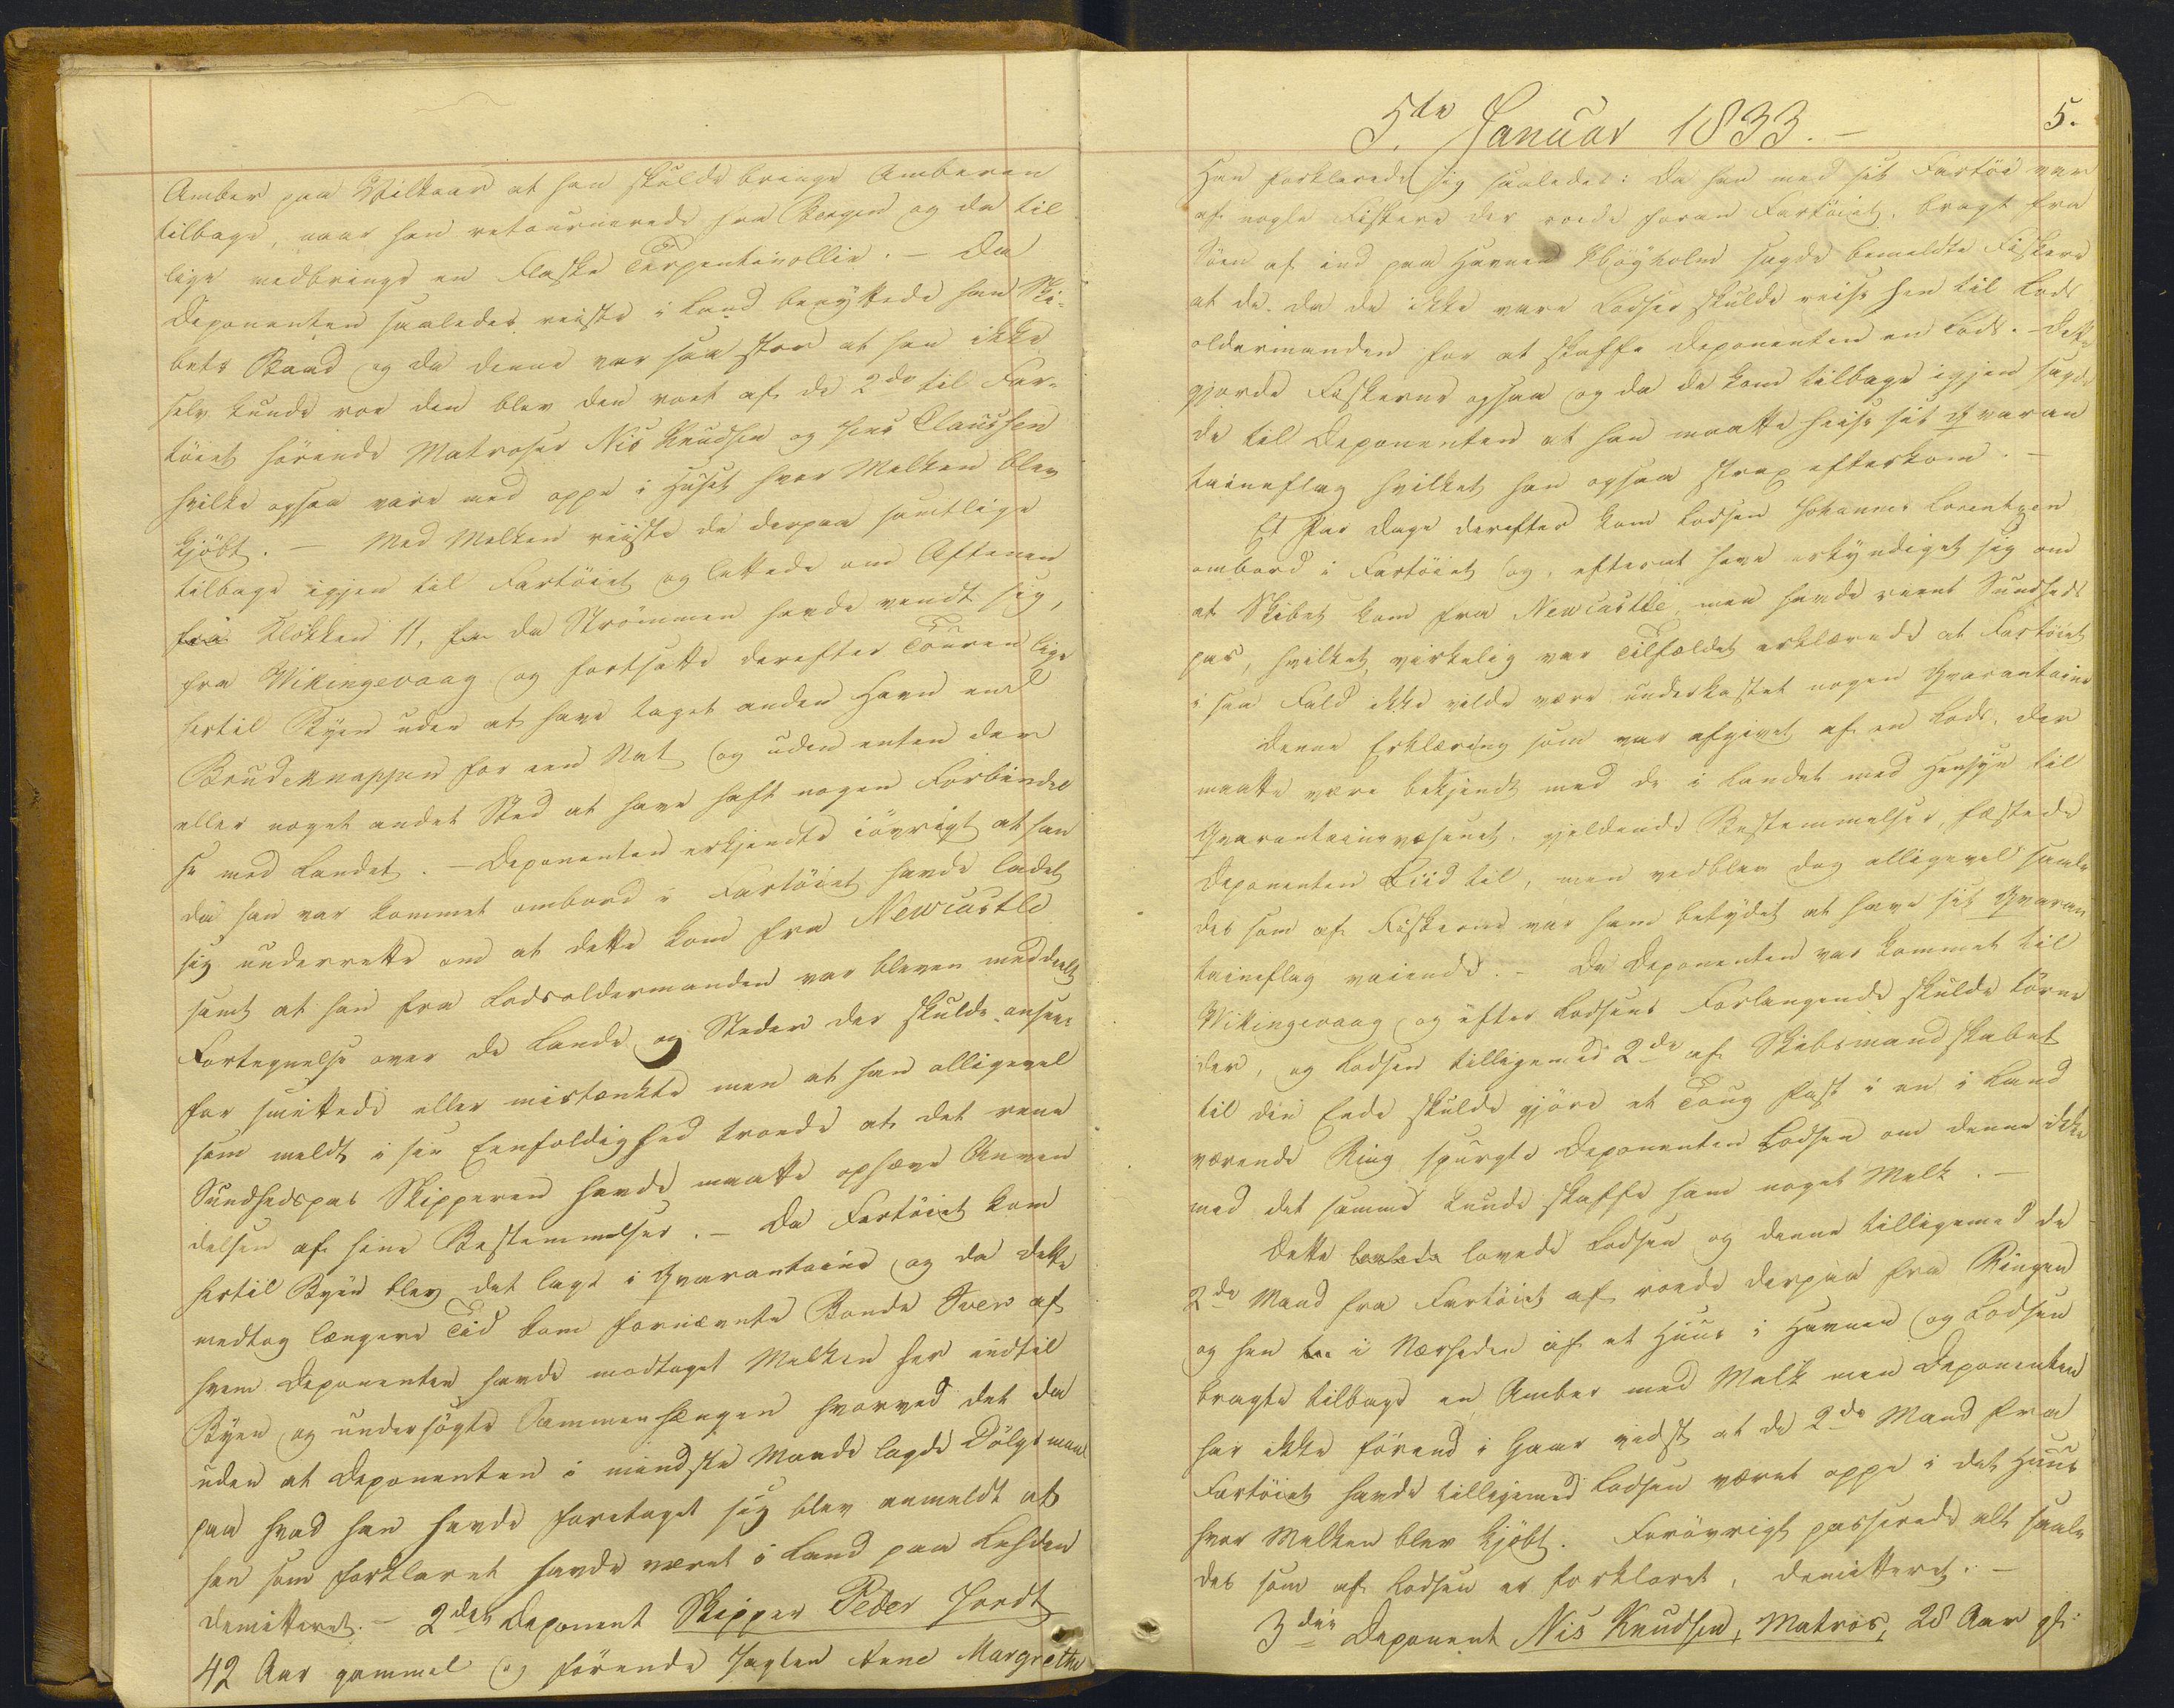 Amber paa Vilkaar at han skulde bringe Amberen
tilbage, naar han retournerede fra Bergen og da til
lige medbringe en Flaske Terpentinollie. – Da
Deponenten saaledes reiste i Land benyttede han Ski-
bets Baad og da denne var saa stor at han ikke
selv kunde roe den blev den roet af de 2de til Far-
töiet hörende Matroser Nis Knudsen og Jens Claussen
hvilke ogsaa vare med oppe i Huset hvor Melken blev
kjöbt. – Med Melken reiste de derpaa samtlige
tilbage igjen til Fartöiet og lettede om Aftenen
fra Klokken 11, da Strömmen havde vendt sig,
fra Wikingevaag og fortsatte derefter Touren lige
hertil Byen uden at have taget anden Havn end
Brudeknappen for een Nat og uden enten der
eller noget andet Sted at have haft nogen Forbindel
se med Landet. – Deponenten erkjendte iövrigt at han
da han var kommet ombord i Fartöiet havde ladet
sig underrette om at dette kom fra Newcastle
samt at han fra Lodsoldermanden var bleven meddeelt
Fortegnelse over de Lande og Steder der skulde ansees
for smittede eller mistænkte men at han alligevel
som meldt i sin Eenfoldighed troede at det rene
Sundhedspas Skipperen havde maatte ophæve Anven
delsen af hine Bestemmelser. – Da Fartöiet kom
hertil Byen blev det lagt i Qvarantaine og da dette
medtog længere Tid kom fornævnte Bonde Sven af
hvem Deponenten havde modtaget Melken her indtil
Byen og undersögte Sammenhængen hvorved det da
uden at Deponenten i mindste Maade lagde Dölgsmaal
paa hvad han havde foretaget sig blev anmeldt at
han som forklaret havde været i Land paa
demitteret. – 2den Deponent Skipper Peder Hordt
42 Aar gammel og förende Jagten Anne Margrethe
5te Januar 1833. –
5.
Han forklarede sig saaledes: Da han med sit Fartöi var
af nogle Fiskere der roede foran Fartöiet, bragt fra
Söen af ind paa Havnen sagde bemeldte Fiskere
at de, da de ikke vare Lodser skulde reise hen til Lods
oldermanden for at skaffe Deponenten en Lods. Dette
gjorde Fiskerne ogsaa og da de kom tilbage igjen sagde
de til Deponenten at han maatte heise sit Qvaran
taineflag hvilket han ogsaa strax efterkom. –
Et Par Dage derefter kom Lodsen Johannes Lorentzen
ombord i Fartöiet og, efterat have erkyndiget sig om
at Skibet kom fra Newcastle, men havde reent Sundheds
pas, hvilket virkelig var Tilfældet erklærede at Fartöiet
i saa Fald ikke vilde være underkastet nogen Qvarantaine
Denne Erklæring som var afgivet af en Lods, der
maatte være bekjendt med de i Landet med Hensyn til
Qvarantainevæsenet, gjeldende Bestemmelser, fæstede
Deponenten Liid til, men vedblev dog alligevel saale
des som af Fiskerne var ham betydet at have sit Qvaran
taineflag vaiende. – Da Deponenten var kommet til
Wikingevaag og efter Lodsens Forlangende skulde törne
der, og Lodsen tilligemed 2de af Skibsmandskabet
til den Ende skulde gjöre et Toug fast i en i Land
værende Ring spurgte Deponenten Lodsen om denne ikke
med det samme kunde skaffe ham noget Melk. –
Dette lovede Lodsen og denne tilligemed de
2de Mand fra Fartöiet af roede derpaa fra Ringen
og hen i Nærheden af et Huus i Havnen og Lodsen
bragte tilbage en Amber med Melk men Deponenten
har ikke förend i Gaar vidst at de 2de Mand fra
Fartöiet havde tilligemed Lodsen været oppe i det Huus
hvor Melken blev kjöbt. Forövrigt passerede alt saale
des som af Lodsen er forklaret, demitteret. –
3die Deponent Nis Knudsen, Matros, 28 Aar gl: